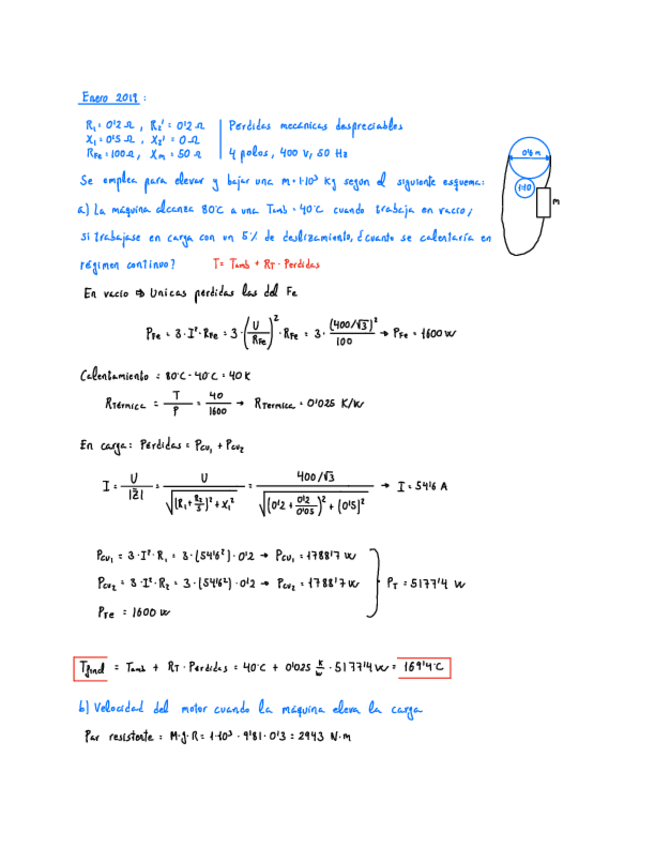 Enero 2019:
R₁ = 0'2 Ω , R₂' = 0'2 Ω | Pérdidas mecánicas despreciables
X₁ = 0'5 Ω , X₂' = 0 Ω
R_Fe = 100 Ω, X_m = 50 Ω | 4 polos, 400 V, 50 Hz
Se emplea para elevar y bajar una m = 1·10³ kg segun el siguiente esquema:
0'6 m
1:10
M
a) La máquina alcanza 80ºC a una Tamb = 40ºC cuando trabaja en vacío,
si trabajase en carga con un 5% de deslizamiento, ¿cuánto se calentaría en
régimen continuo? T = Tamb + R_T · Perdidas
En vacío ⇒ Unicas perdidas las del Fe
P_Fe = 3·I²·R_Fe = 3·(U/R_Fe)²·R_Fe = 3·(400/√3)²/100 → P_Fe = 1600 W
Calentamiento = 80ºC - 40ºC = 40 K
R_Térmica = T/P = 40/1600 → R_Termica = 0'025 K/W
En carga: Pérdidas = P_cu₁ + P_cu₂
I = U/|Z̄| = U/√((R₁ + R₂/S)² + X₁²) = 400/√3/√((0'2 + 0'2/0'05)² + (0'5)²) → I = 54'6 A
P_cu₁ = 3·I²·R₁ = 3·(54'6²)·0'2 → P_cu₁ = 1788'7 W
P_cu₂ = 3·I²·R₂ = 3·(54'6²)·0'2 → P_cu₂ = 1788'7 W } P_T = 5177'4 W
P_Fe = 1600 W
T_final = Tamb + R_T · Perdidas = 40ºC + 0'025 K/W · 5177'4 W = 169'4ºC
b) Velocidad del motor cuando la máquina eleva la carga
Par resistente = M·g·R = 1·10³ · 9'81 · 0'3 = 2943 N·m